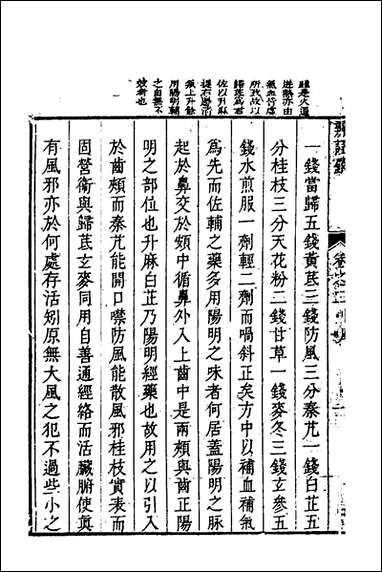 雖是火邅
逆熱亦由
氣血行虛
所致故以
歸芪為君
佐以升麻
提右學活
須上升餘
用陽明輔
之自無不
效者也
辨證錄
一錢當歸五錢黃芪三錢防風三分秦艽一錢白芷五
分桂枝三分天花粉二錢甘草一錢麥冬三錢玄參五
錢水煎服一劑輕二劑而喎斜正矣方中以補血補氣
為先而佐輔之藥多用陽明之味者何居蓋陽明之脈
起於鼻交於頞中循鼻外入上齒中是兩頰與齒正陽
明之部位也升麻白芷乃陽明經藥也故用之以引入
於齒頰而秦艽能開口噤防風能散風邪桂枝實表而
固營衛與歸芪玄麥同用自善通經絡而活臟腑使真
有風邪亦於何處存活矧原無大風之犯不過些小之